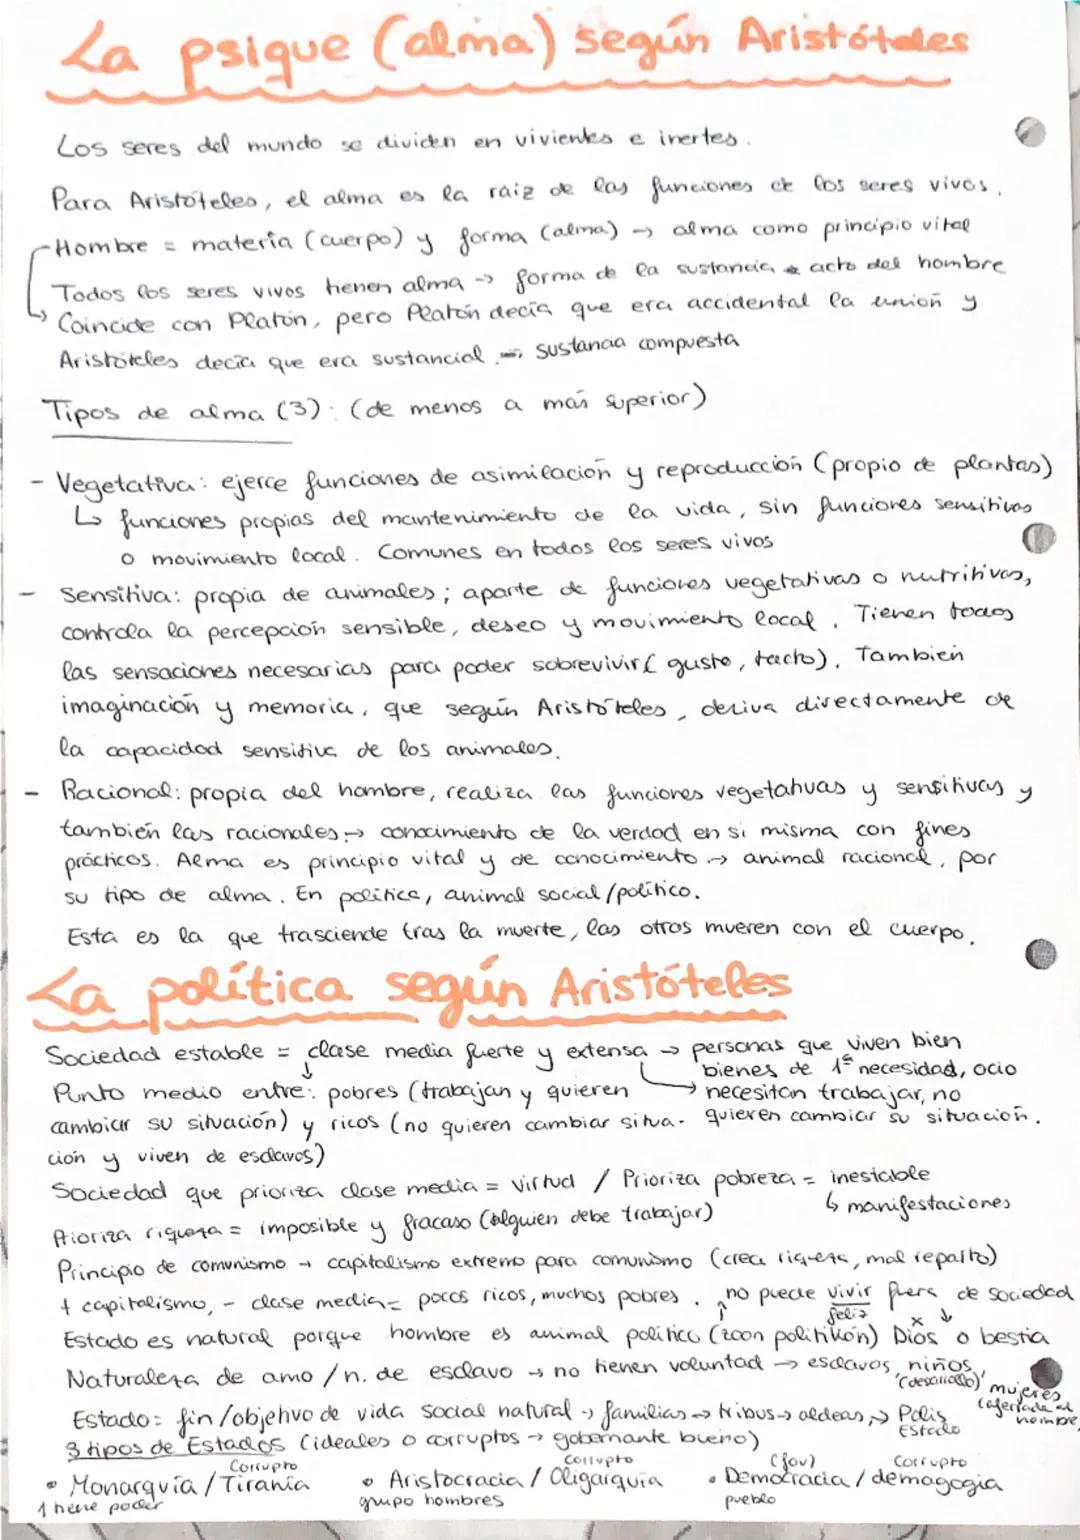 La psique (alma) según Aristóteles
Los seres del mundo se dividen en vivientes e inertes.
Para Aristóteles, el alma es la raiz de las funciones de los seres vivos.
Hombre = materia (cuerpo) y forma (alma) → alma como principio vital
Todos los seres vivos tienen alma → forma de la sustancia acto del hombre
↳ Coincide con Platón, pero Platón decía que era accidental la unión y
Aristóteles decía que era sustancial. → sustancia compuesta
Tipos de alma (3): (de menos a más superior)
- Vegetativa: ejerce funciones de asimilación y reproducción (propio de plantas)
↳ funciones propias del mantenimiento de la vida, sin funciones sensitivas
o movimiento local. Comunes en todos los seres vivos
- Sensitiva: propia de animales; aparte de funciones vegetativas o nutritivas,
controla la percepción sensible, deseo y movimiento local. Tienen todas
las sensaciones necesarias para poder sobrevivir (gusto, tacto). También
imaginación y memoria, que según Aristóteles, deriva directamente de
la capacidad sensitiva de los animales.
- Racional: propia del hombre, realiza las funciones vegetativas y sensitivas y
también las racionales → conocimiento de la verdad en si misma con fines
prácticos. Alma es principio vital y de conocimiento → animal racional, por
su tipo de alma. En política, animal social/político.
Esta es la que trasciende tras la muerte, las otros mueren con el cuerpo.
La política según Aristóteles
Sociedad estable = clase media fuerte y extensa → personas que viven bien
bienes de 1ª necesidad, ocio
Punto medio entre: pobres (trabajan y quieren → necesitan trabajar, no
cambiar su situación) y ricos (no quieren cambiar situa- quieren cambiar su situación.
ción y viven de esclavos)
Sociedad que prioriza clase media = virtud / Prioriza pobreza = inestable
↳ manifestaciones
Prioriza riqueza = imposible y fracaso (alguien debe trabajar)
Principio de comunismo → capitalismo extremo para comunismo (crea riqueza, mal reparto)
+ capitalismo, - clase media = pocos ricos, muchos pobres. no puede vivir fuera de sociedad
feliz
Estado es natural porque hombre es animal político (zoon politikón) Dios o bestia
Naturaleza de amo / n. de esclavo → no tienen voluntad → esclavos, niños,
(desarrollo) mujeres
Estado = fin/objetivo de vida social natural → familias → tribus → aldeas → Polis
hombre
Estado
3 tipos de Estados (ideales o corruptos → gobernante bueno)
Corrupto Corrupto (fav) Corrupto
• Monarquía / Tiranía • Aristocracia / Oligarquía • Democracia / demagogia
1 tiene poder grupo hombres pueblo